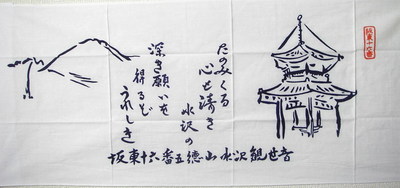 坂東十六番
たのみくる
心も清き
水沢の
深き願いを
得るぞ
うれしき
坂東十六番五徳山水沢観世音